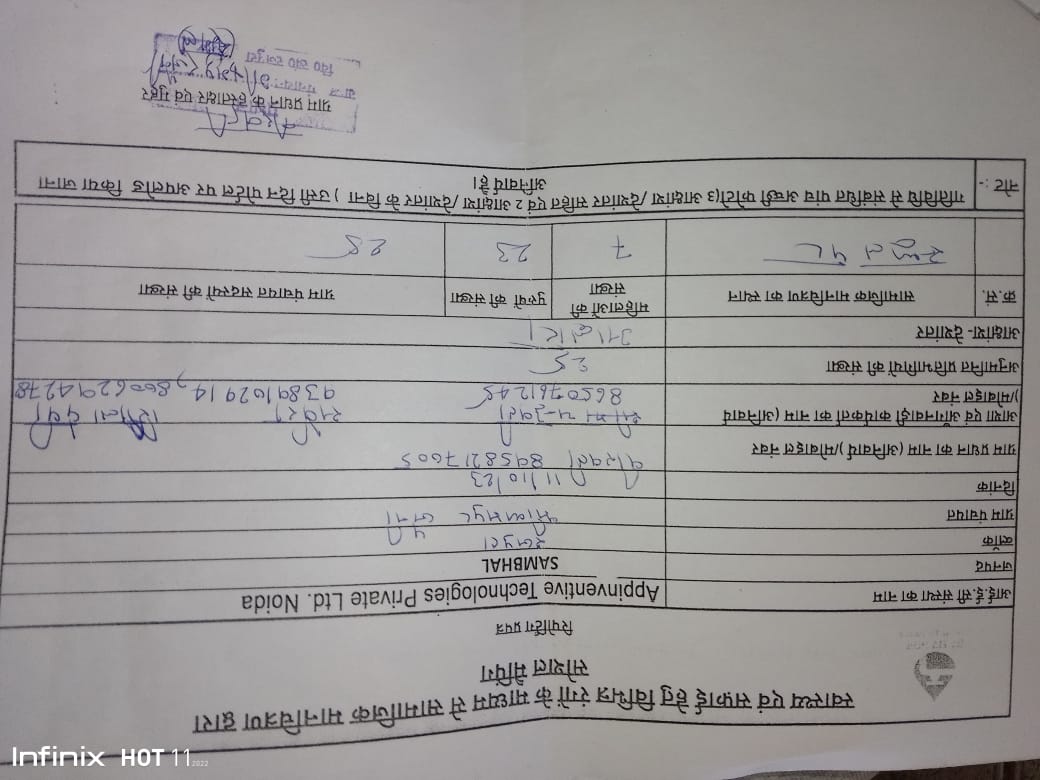 स्वास्थ्य एवं सफाई हेतु विभिन्न रंगों के माध्यम से सामाजिक मानचित्रण द्वारा
सोशल मैपिंग
रिपोर्टिंग प्रपत्र
आई.ई.सी संस्था का नाम Appinventive Technologies Private Ltd. Noida
जनपद SAMBHAL
ब्लॉक रजपुरा
ग्राम पंचायत
दिनांक 11/10/23
ग्राम प्रधान का नाम (अनिवार्य)/मोबाइल नंबर 8958217605
आशा एवं आँगनवाड़ी कार्यकर्ता का नाम (अनिवार्य
)/मोबाइल नंबर 8650761245 9389102914, 8006294278
अनुमानित प्रतिभागियों की संख्या 25
आक्षांश- देशांतर
क्र.सं. सामाजिक मानचित्रण का स्थान महिलाओं की संख्या पुरुषों की संख्या ग्राम पंचायत सदस्यों की संख्या
7 23 25
नोट :- गतिविधि से संबंधित पांच अच्छी फोटो(3 आक्षांश /देशांतर सहित एवं 2 आक्षांश /देशांतर के बिना ) उसी दिन पोर्टल पर अपलोड किया जाना
अनिवार्य है।
ग्राम प्रधान के हस्ताक्षर एवं मुहर
Infinix HOT 11 2022